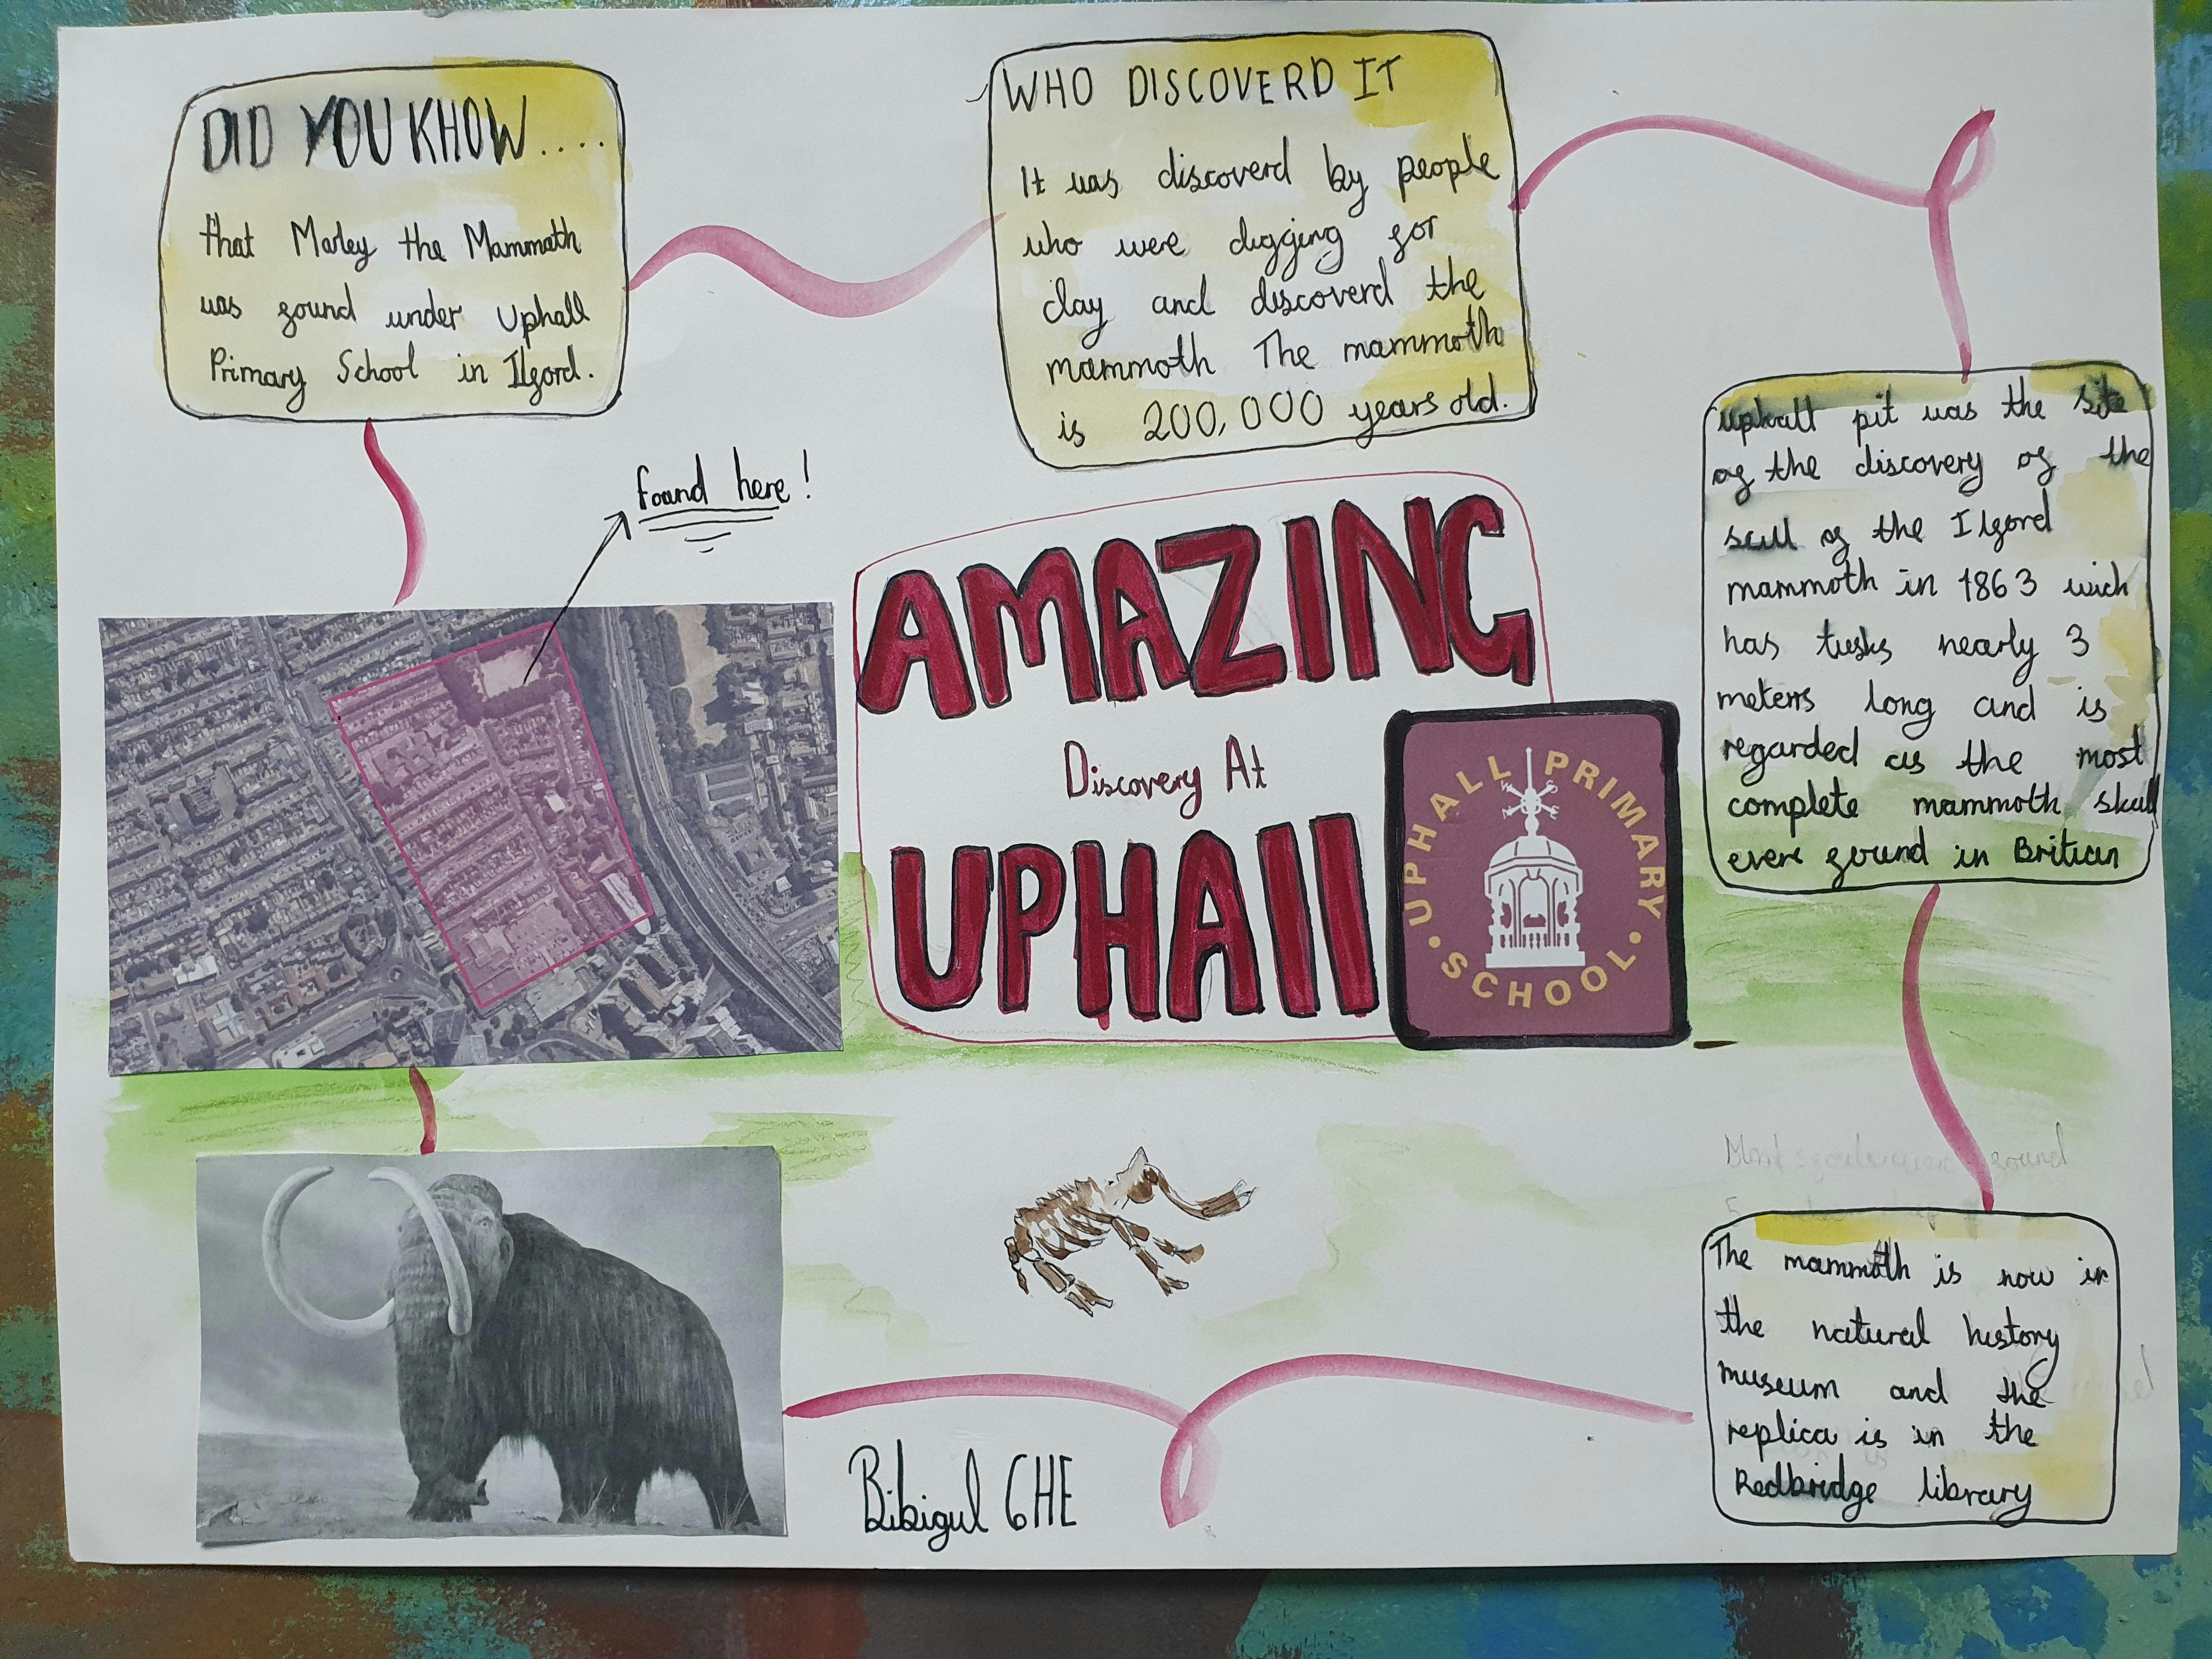 DID YOU KHOW....
that Marley the Mammath
was found under Uphall
Primary School in Ilford.
WHO DISCOVERD IT
It was discoverd by people
who were digging for
clay and discoverd the
mammoth The mammoth
is 200,000 years old.
found here!
AMAZING
Discovery At
UPHAll
UPHALL PRIMARY
SCHOOL
uphall pit was the site
of the discovery of the
scull of the Ilford
mammoth in 1863 wich
has tusks nearly 3
meters long and is
regarded as the most
complete mammoth skull
ever found in Britian
found
The mammoth is now in
the natural history
museum and the
replica is in the
Redbridge library
Bibigul 6HE